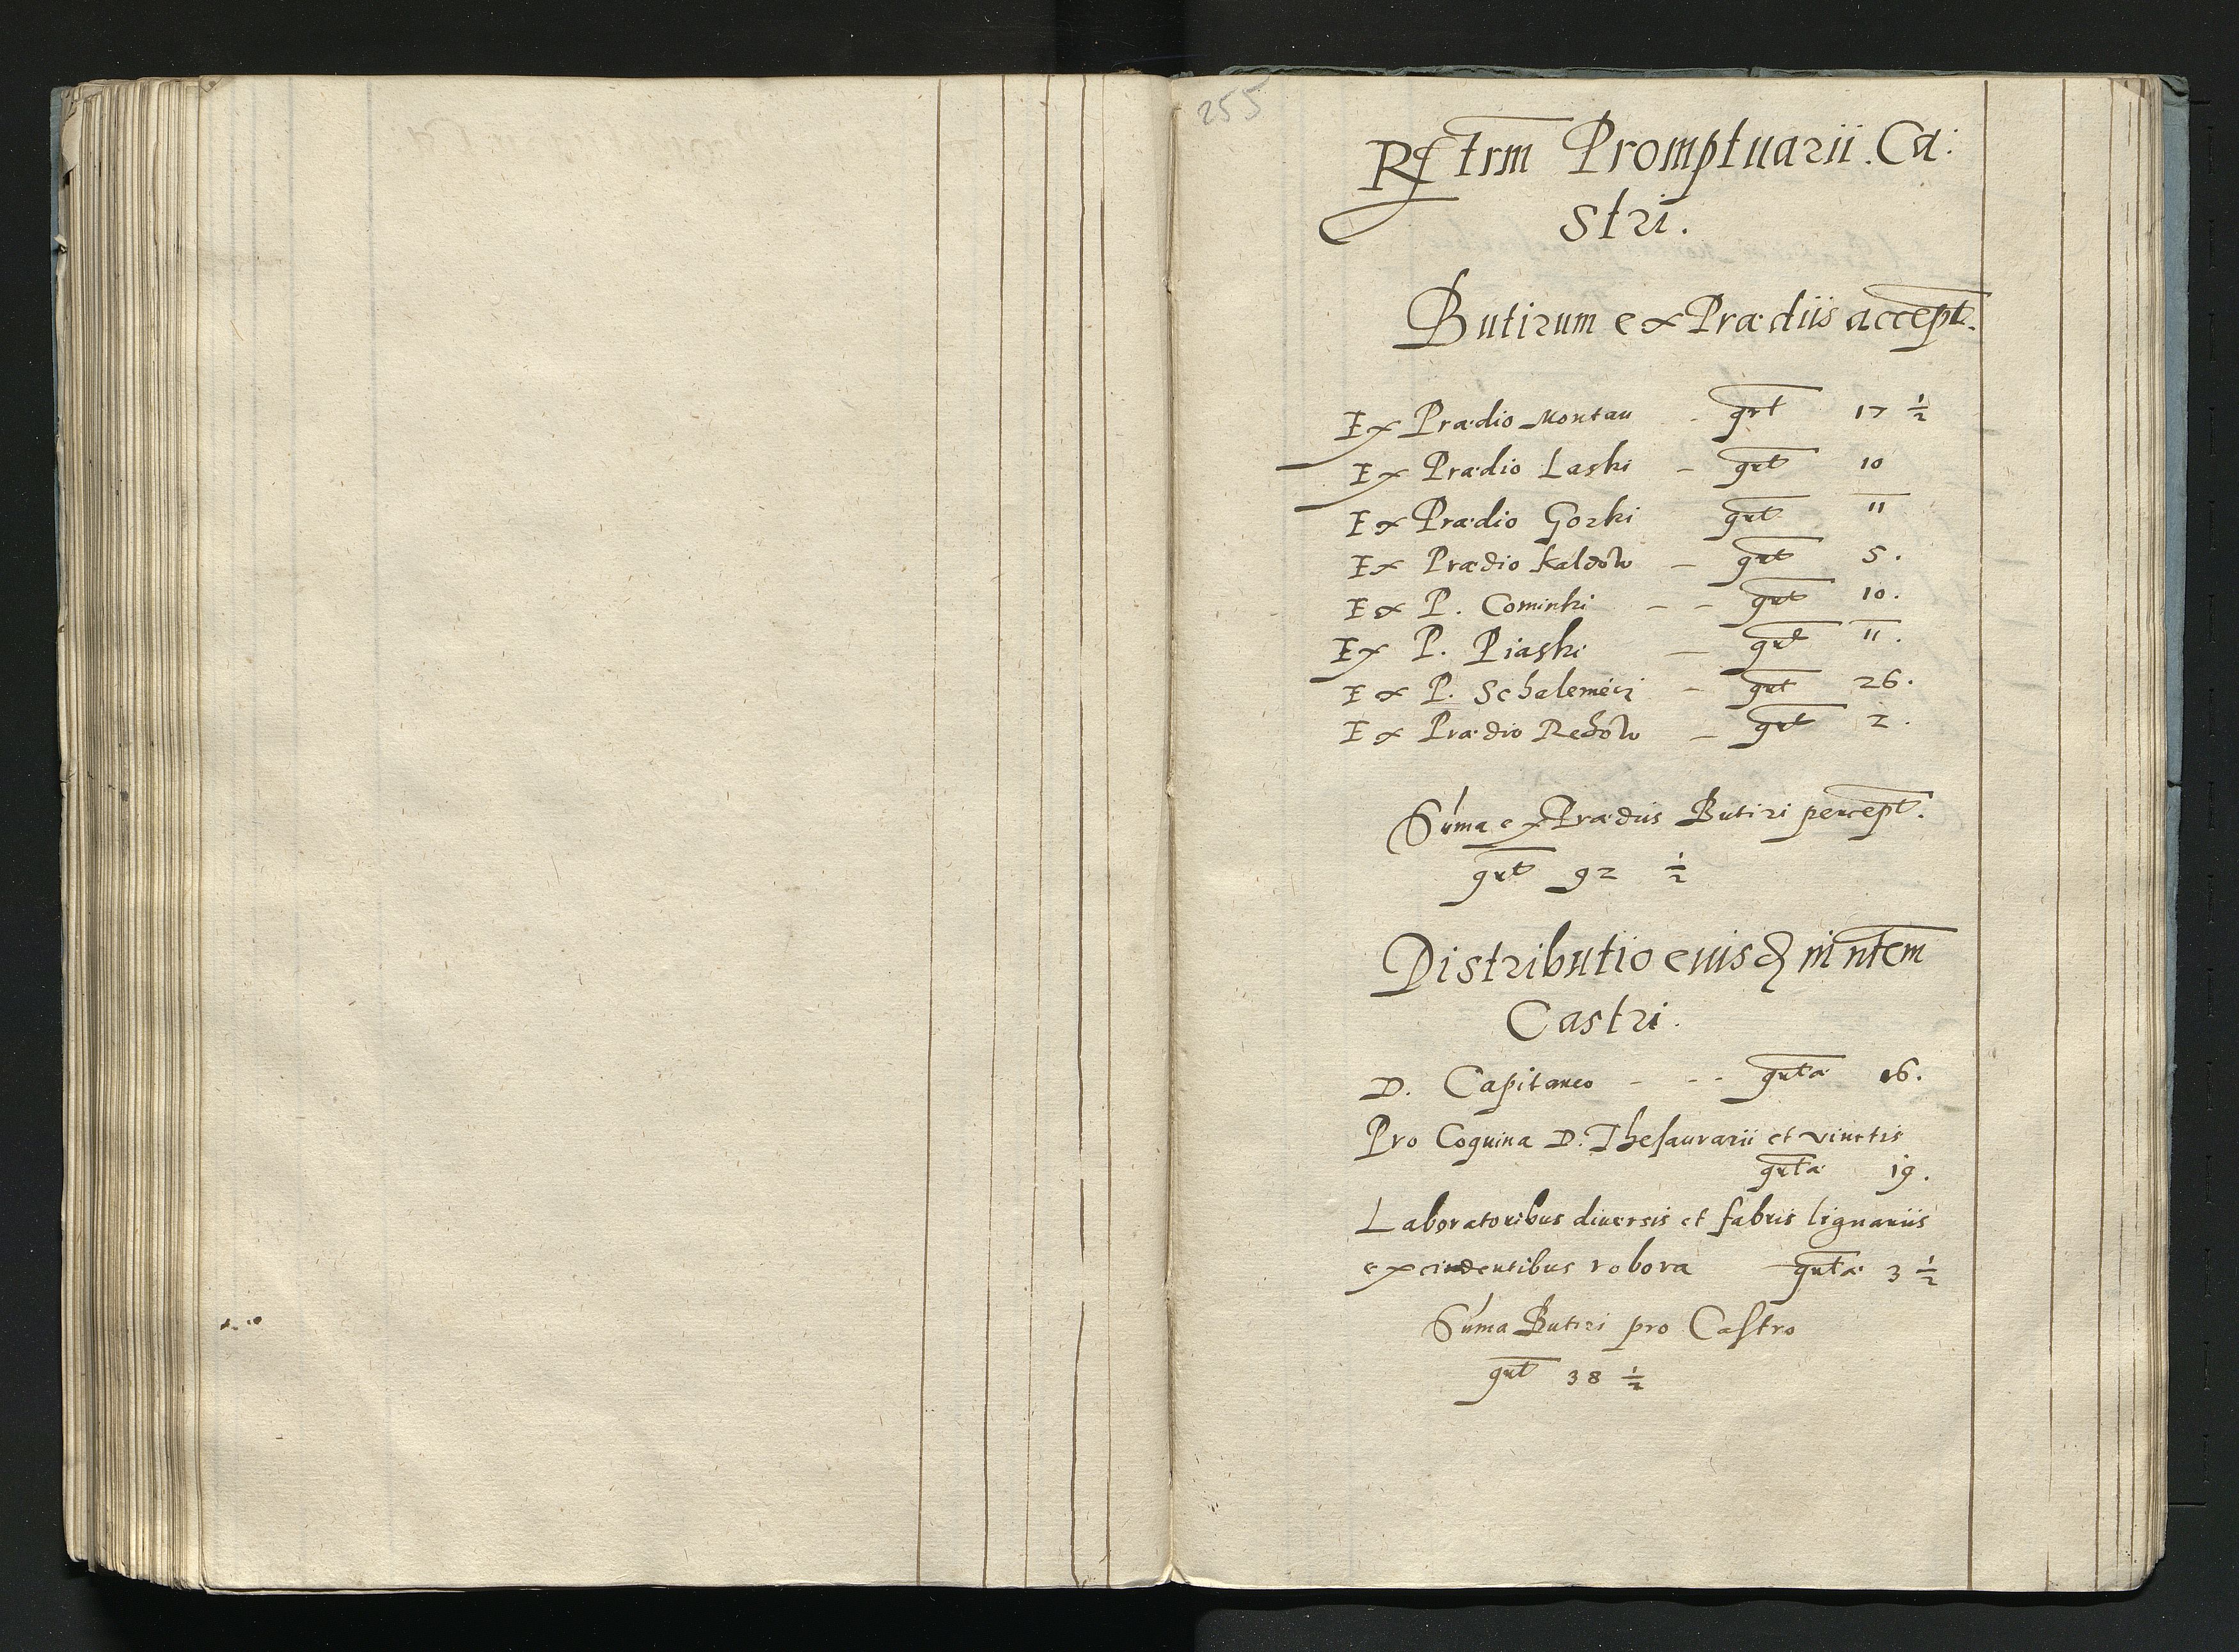 255
Rstrm Promptuarii. Ca:
stri.
Butirum ex Prædiis accept.
Ex Prædio Montau - grt 17 ½
Ex Prædio Laski - grt 10
Ex Prædio Gorki grt 11
Ex Prædio Kaldow - grt 5.
Ex P. Cominki - - grt 10.
Ex P. Piaski - grt 11.
Ex P. Schalemeÿ - grt 26.
Ex Prædio Redow - grt 2.
Sum̃a ex Prædiis Butiri percept.
grt 92 ½
Distributio eiusd in ntem
Castri.
D. Capitaneo - - - grta 16.
Pro Coquina D. Thesaurarii et vinctis
grta 19.
Laboratoribus diversis et fabris lignariis
excindentibus robora grta 3 ½
Sum̃a Butiri pro Castro
grt 38 ½